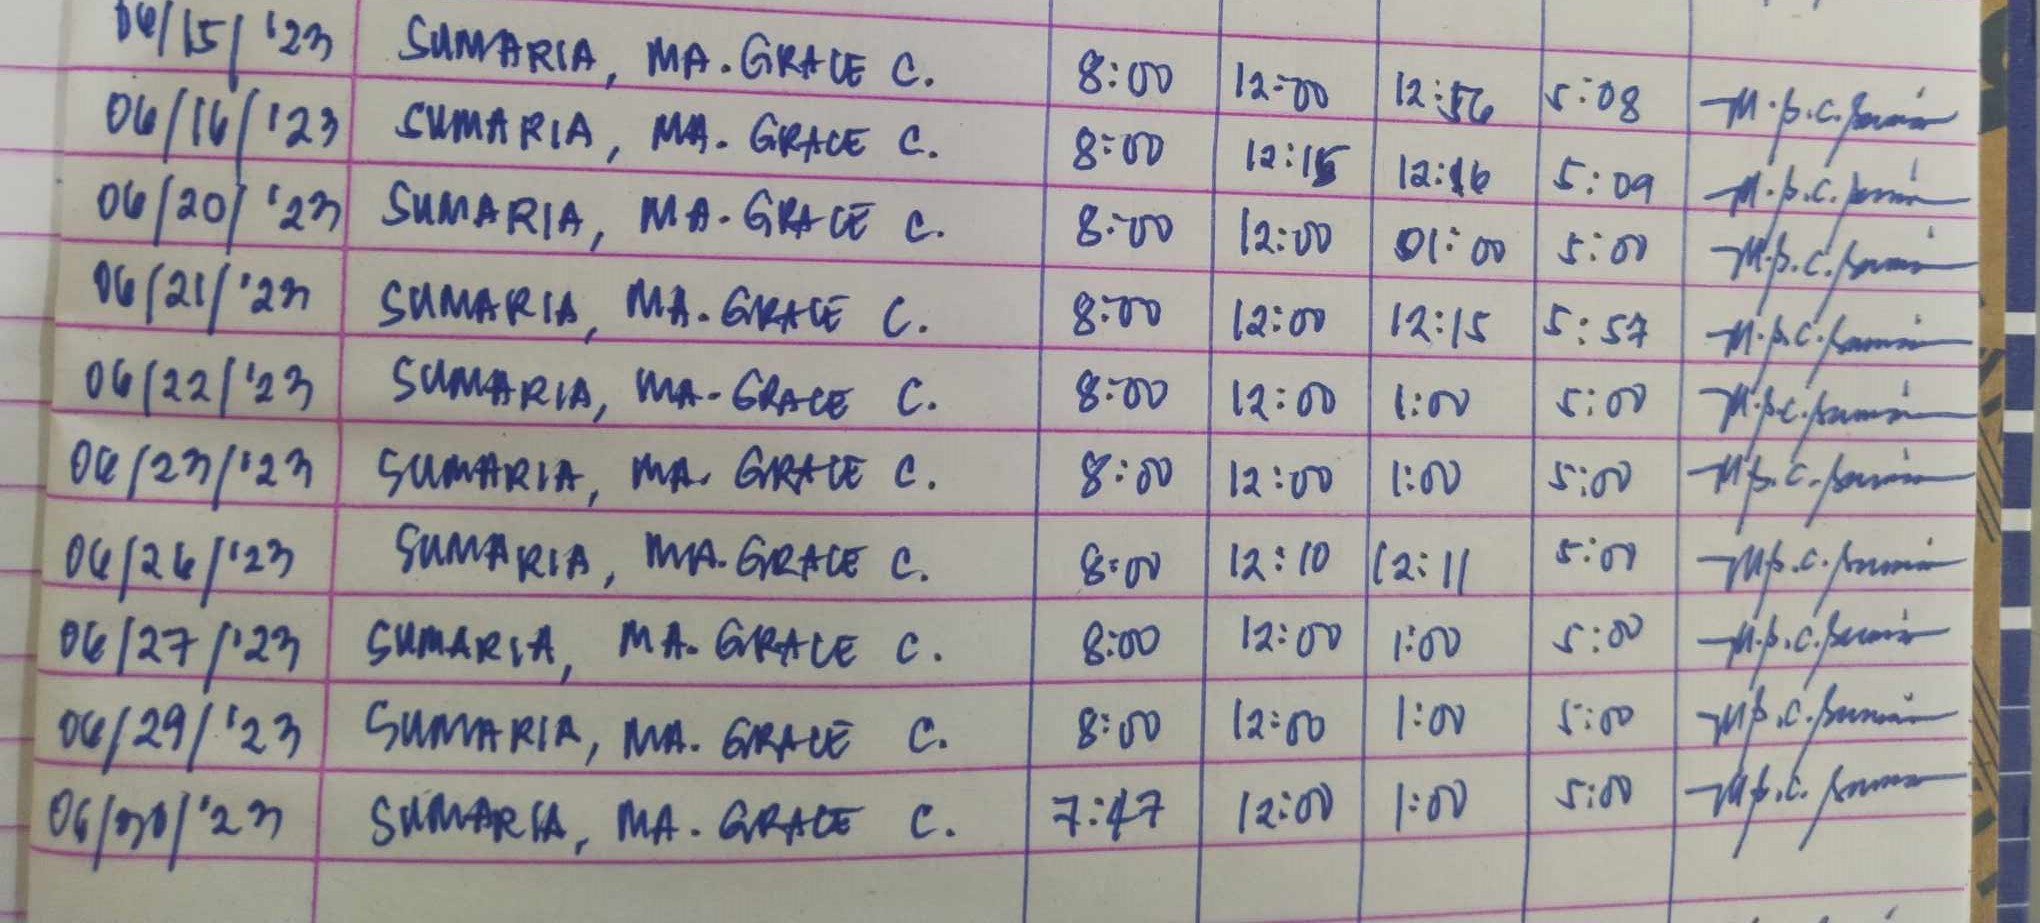 06/15/'23 SUMARIA, MA. GRACE C. 8:00 12:00 12:56 5:08 M.G.C. Sumaria
06/16/'23 SUMARIA, MA. GRACE C. 8:00 12:15 12:16 5:09 M.G.C. Sumaria
06/20/'23 SUMARIA, MA. GRACE C. 8:00 12:00 01:00 5:00 M.G.C. Sumaria
06/21/'23 SUMARIA, MA. GRACE C. 8:00 12:00 12:15 5:57 M.G.C. Sumaria
06/22/'23 SUMARIA, MA. GRACE C. 8:00 12:00 1:00 5:00 M.G.C. Sumaria
06/23/'23 SUMARIA, MA. GRACE C. 8:00 12:00 1:00 5:00 M.G.C. Sumaria
06/26/'23 SUMARIA, MA. GRACE C. 8:00 12:10 12:11 5:00 M.G.C. Sumaria
06/27/'23 SUMARIA, MA. GRACE C. 8:00 12:00 1:00 5:00 M.G.C. Sumaria
06/29/'23 SUMARIA, MA. GRACE C. 8:00 12:00 1:00 5:00 M.G.C. Sumaria
06/30/'23 SUMARIA, MA. GRACE C. 7:47 12:00 1:00 5:00 M.G.C. Sumaria